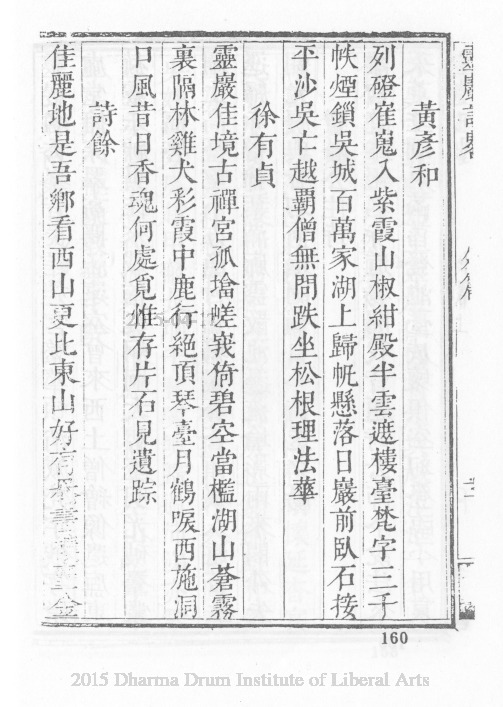 黃彥和
列磴崔嵬入紫霞山椒紺殿半雲遮樓臺梵字三千
帙煙鎖吳城百萬家湖上歸帆懸落日巖前臥石接
平沙吳亡越霸僧無問趺坐松根理法華
徐有貞
靈巖佳境古禪宮孤墖嵯峩倚碧空當檻湖山蒼霧
裏隔林雞犬彩霞中鹿行絕頂琴臺月鶴唳西施洞
口風昔日香魂何處覓惟存片石見遺踪
詩餘
佳麗地是吾鄉看西山更比東山好有
160
2015 Dharma Drum Institute of Liberal Arts